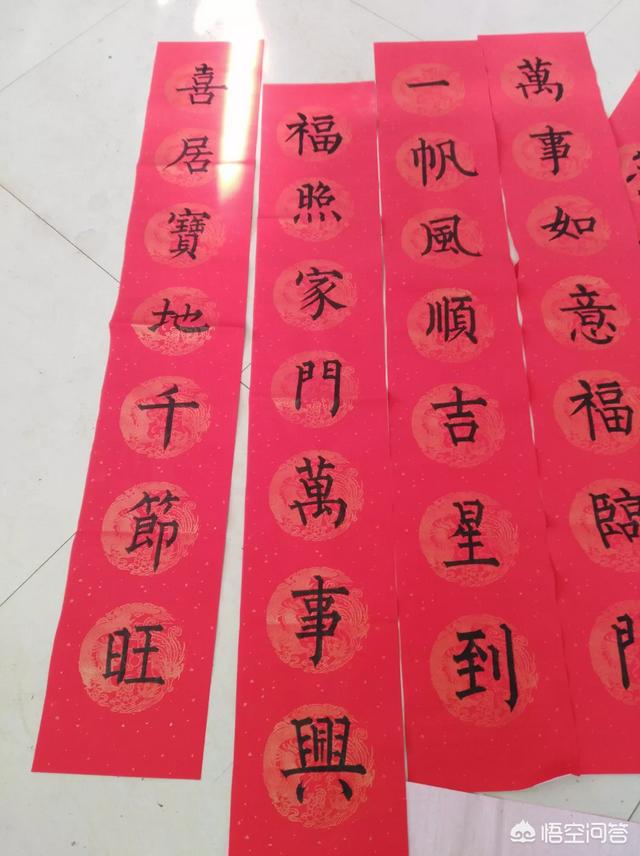 喜居寶地千節旺
福照家門萬事興
一帆風順吉星到
萬事如意福臨門
悟空问答